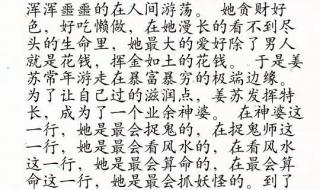 浑浑噩噩的在人间游荡。 她贪财好
色，好吃懒做，在她漫长的看不到尽
头的生命里，她最大的爱好除了男人
就是花钱，挥金如土的花钱。 于是姜
苏常年游走在暴富暴穷的极端边缘。
为了让自己过的滋润点，姜苏发挥特
长，成为了一个业余神婆。 在神婆这
一行，她是最会捉鬼的，在捉鬼师这
一行，她是最会看风水的，在看风水
这一行，她是最会算命的，在最会算
命这一行，她是最会抓妖怪的。到了